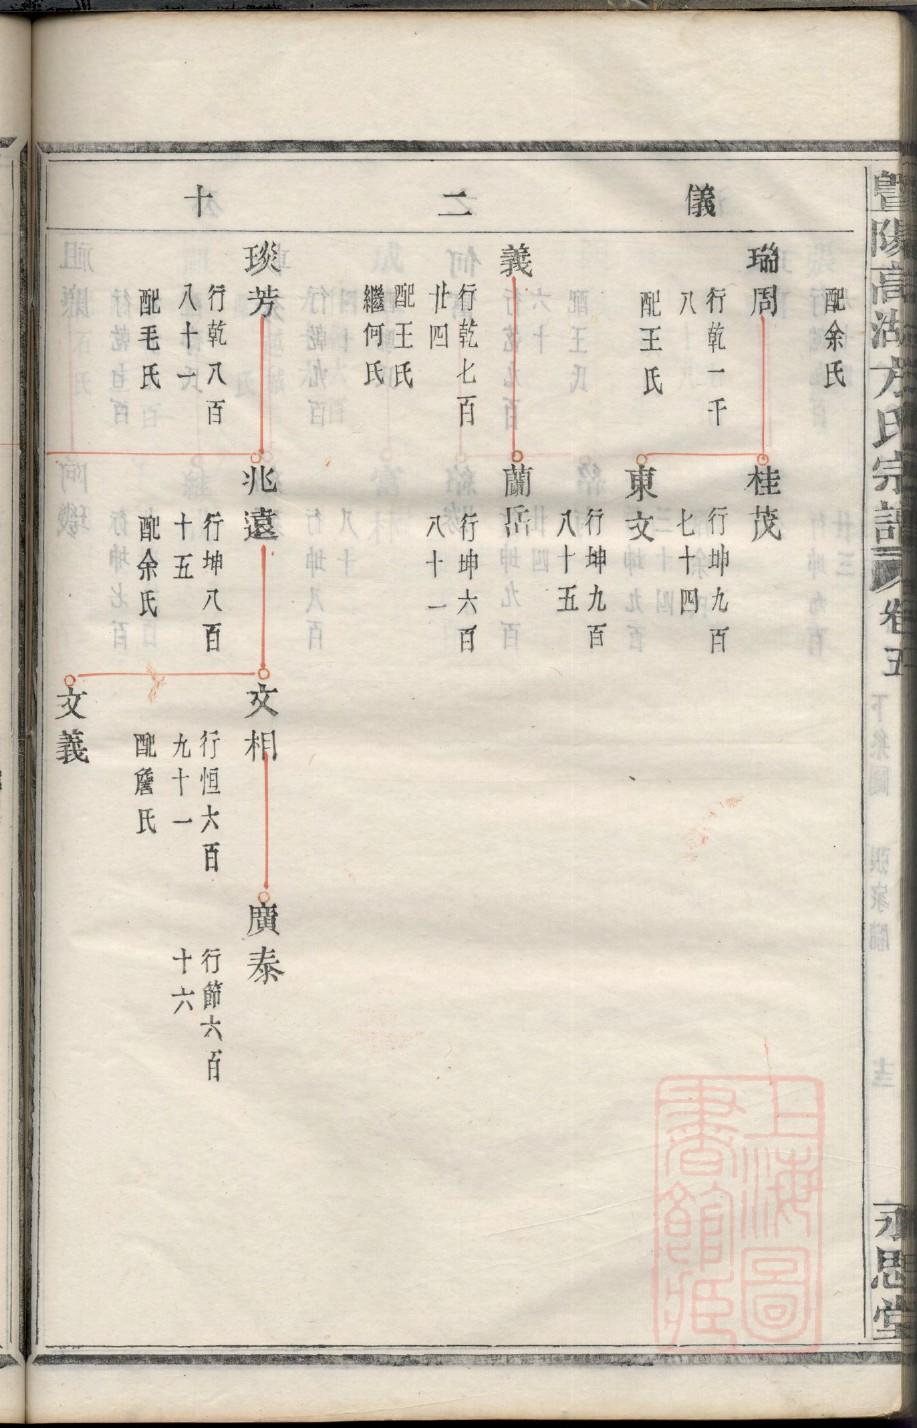 暨陽高湖方氏宗譜
卷五
下系圖
張家腩
永思堂
儀
二
十
配余氏
瑞周
行乾一千
八
配王氏
義
行乾七百
廿四
配王氏
繼何氏
琰芳
行乾八百
八十一
配毛氏
桂茂
行坤九百
七十四
東文
行坤九百
八十五
蘭岳
行坤六百
八十一
兆遠
行坤八百
十五
配余氏
文相
行恒六百
九十一
配詹氏
文義
廣泰
行節六百
十六
上海圖
書館藏